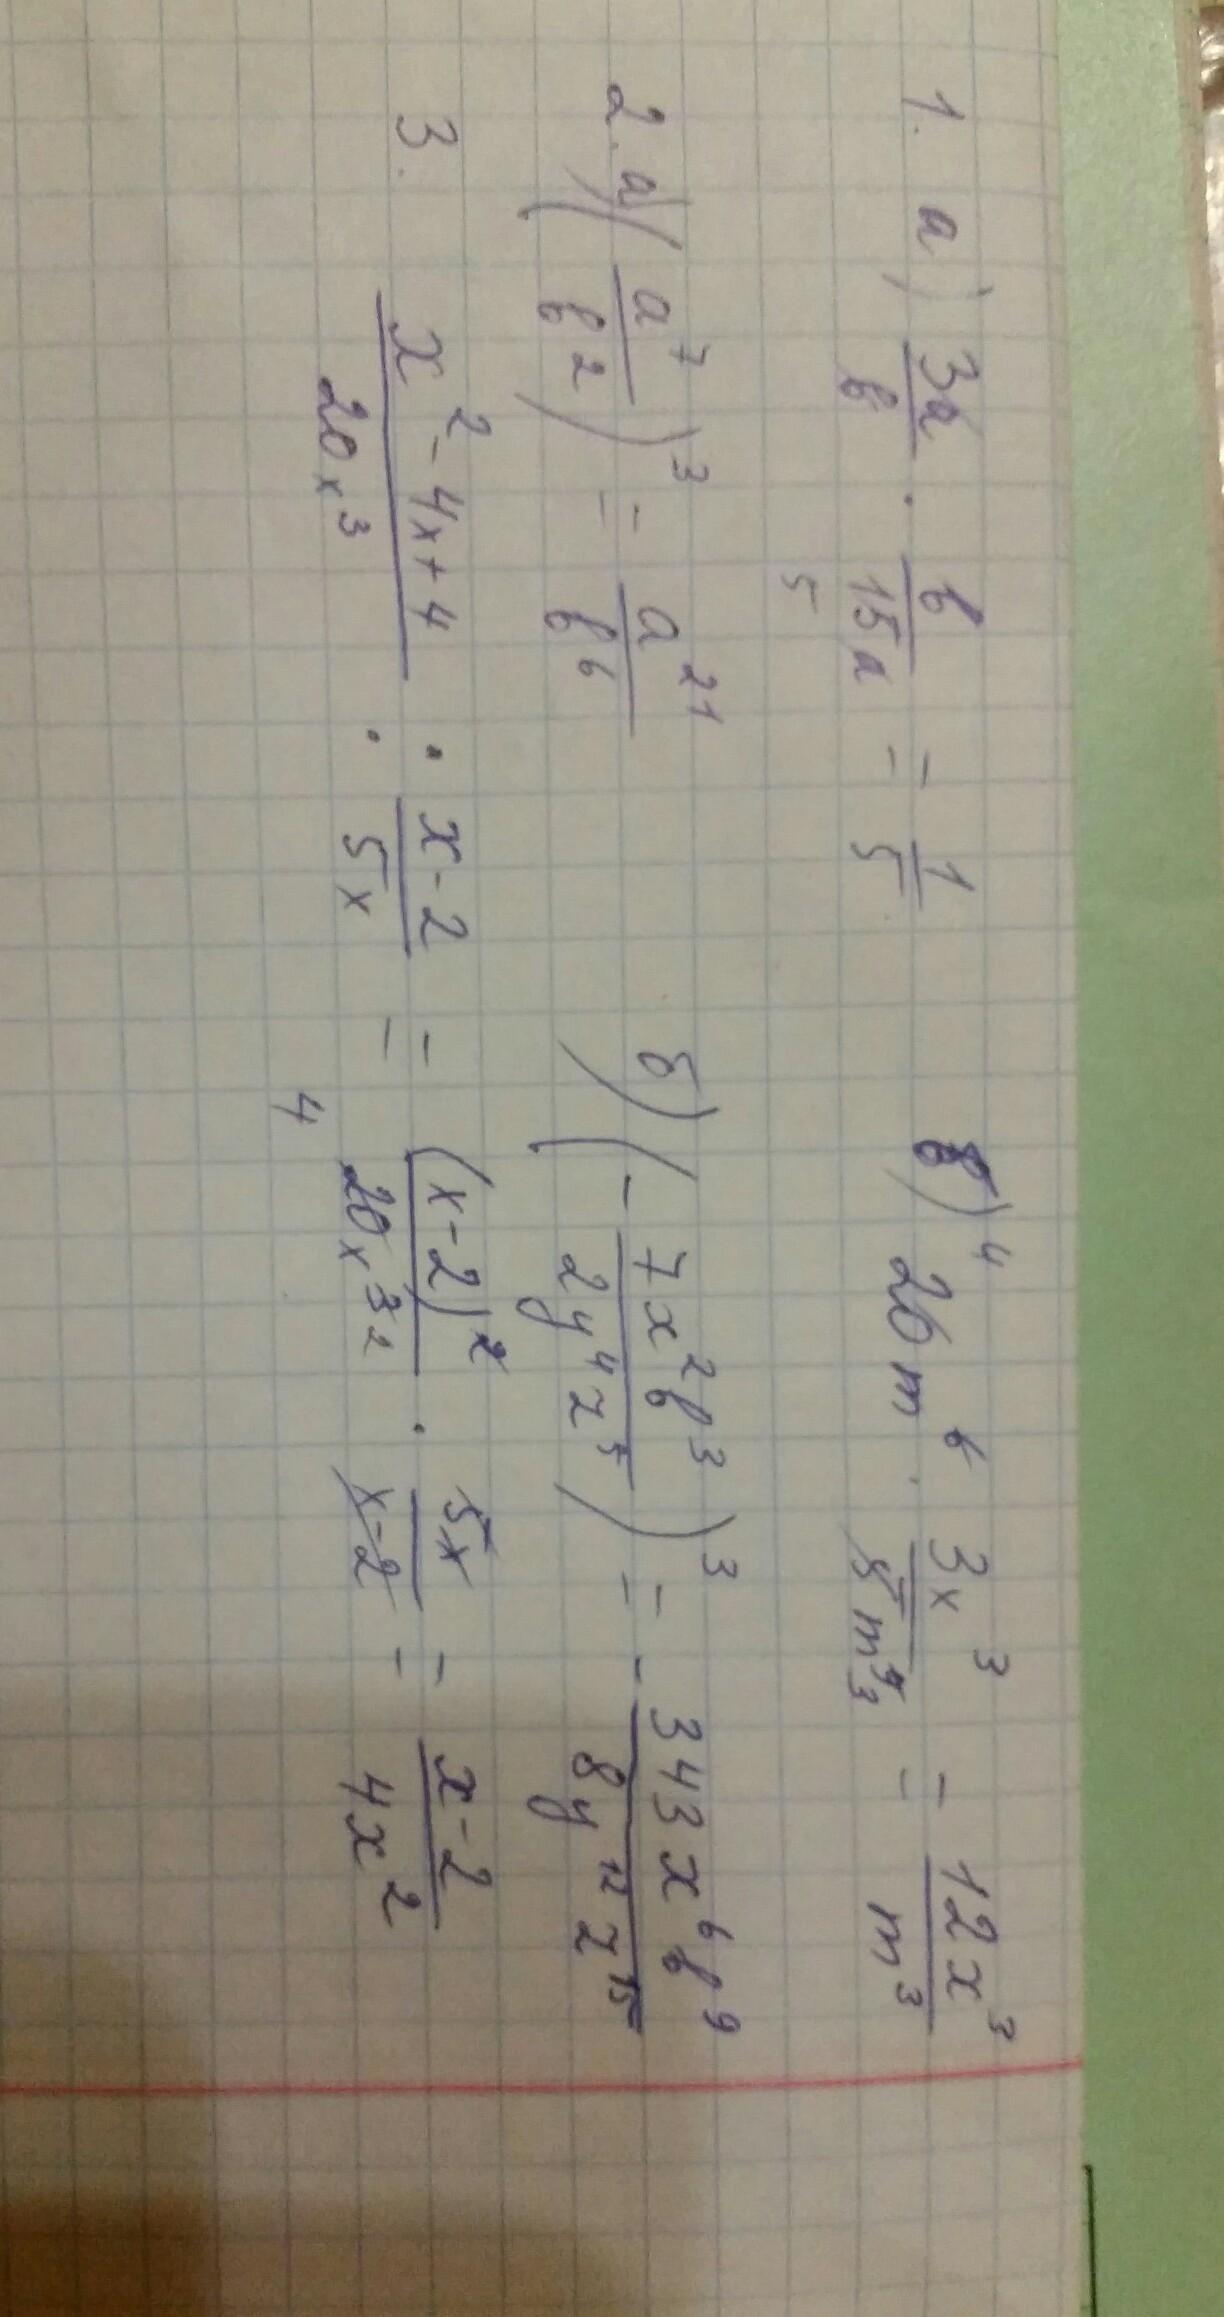 1. а) 3а/в · в/15а = 1/5 б) 20m⁶ · 3x³/5m⁹ = 12x³/m³
5 4 3
2. а) (a⁷/в²)³ = a²¹/в⁶ б) (- 7x²в³/2y⁴z⁵)³ = - 343x⁶в⁹/8y¹²z¹⁵
3. x²-4x+4/20x³ : x-2/5x = (x-2)²/20x³ · 5x/x-2 = x-2/4x²
4 2